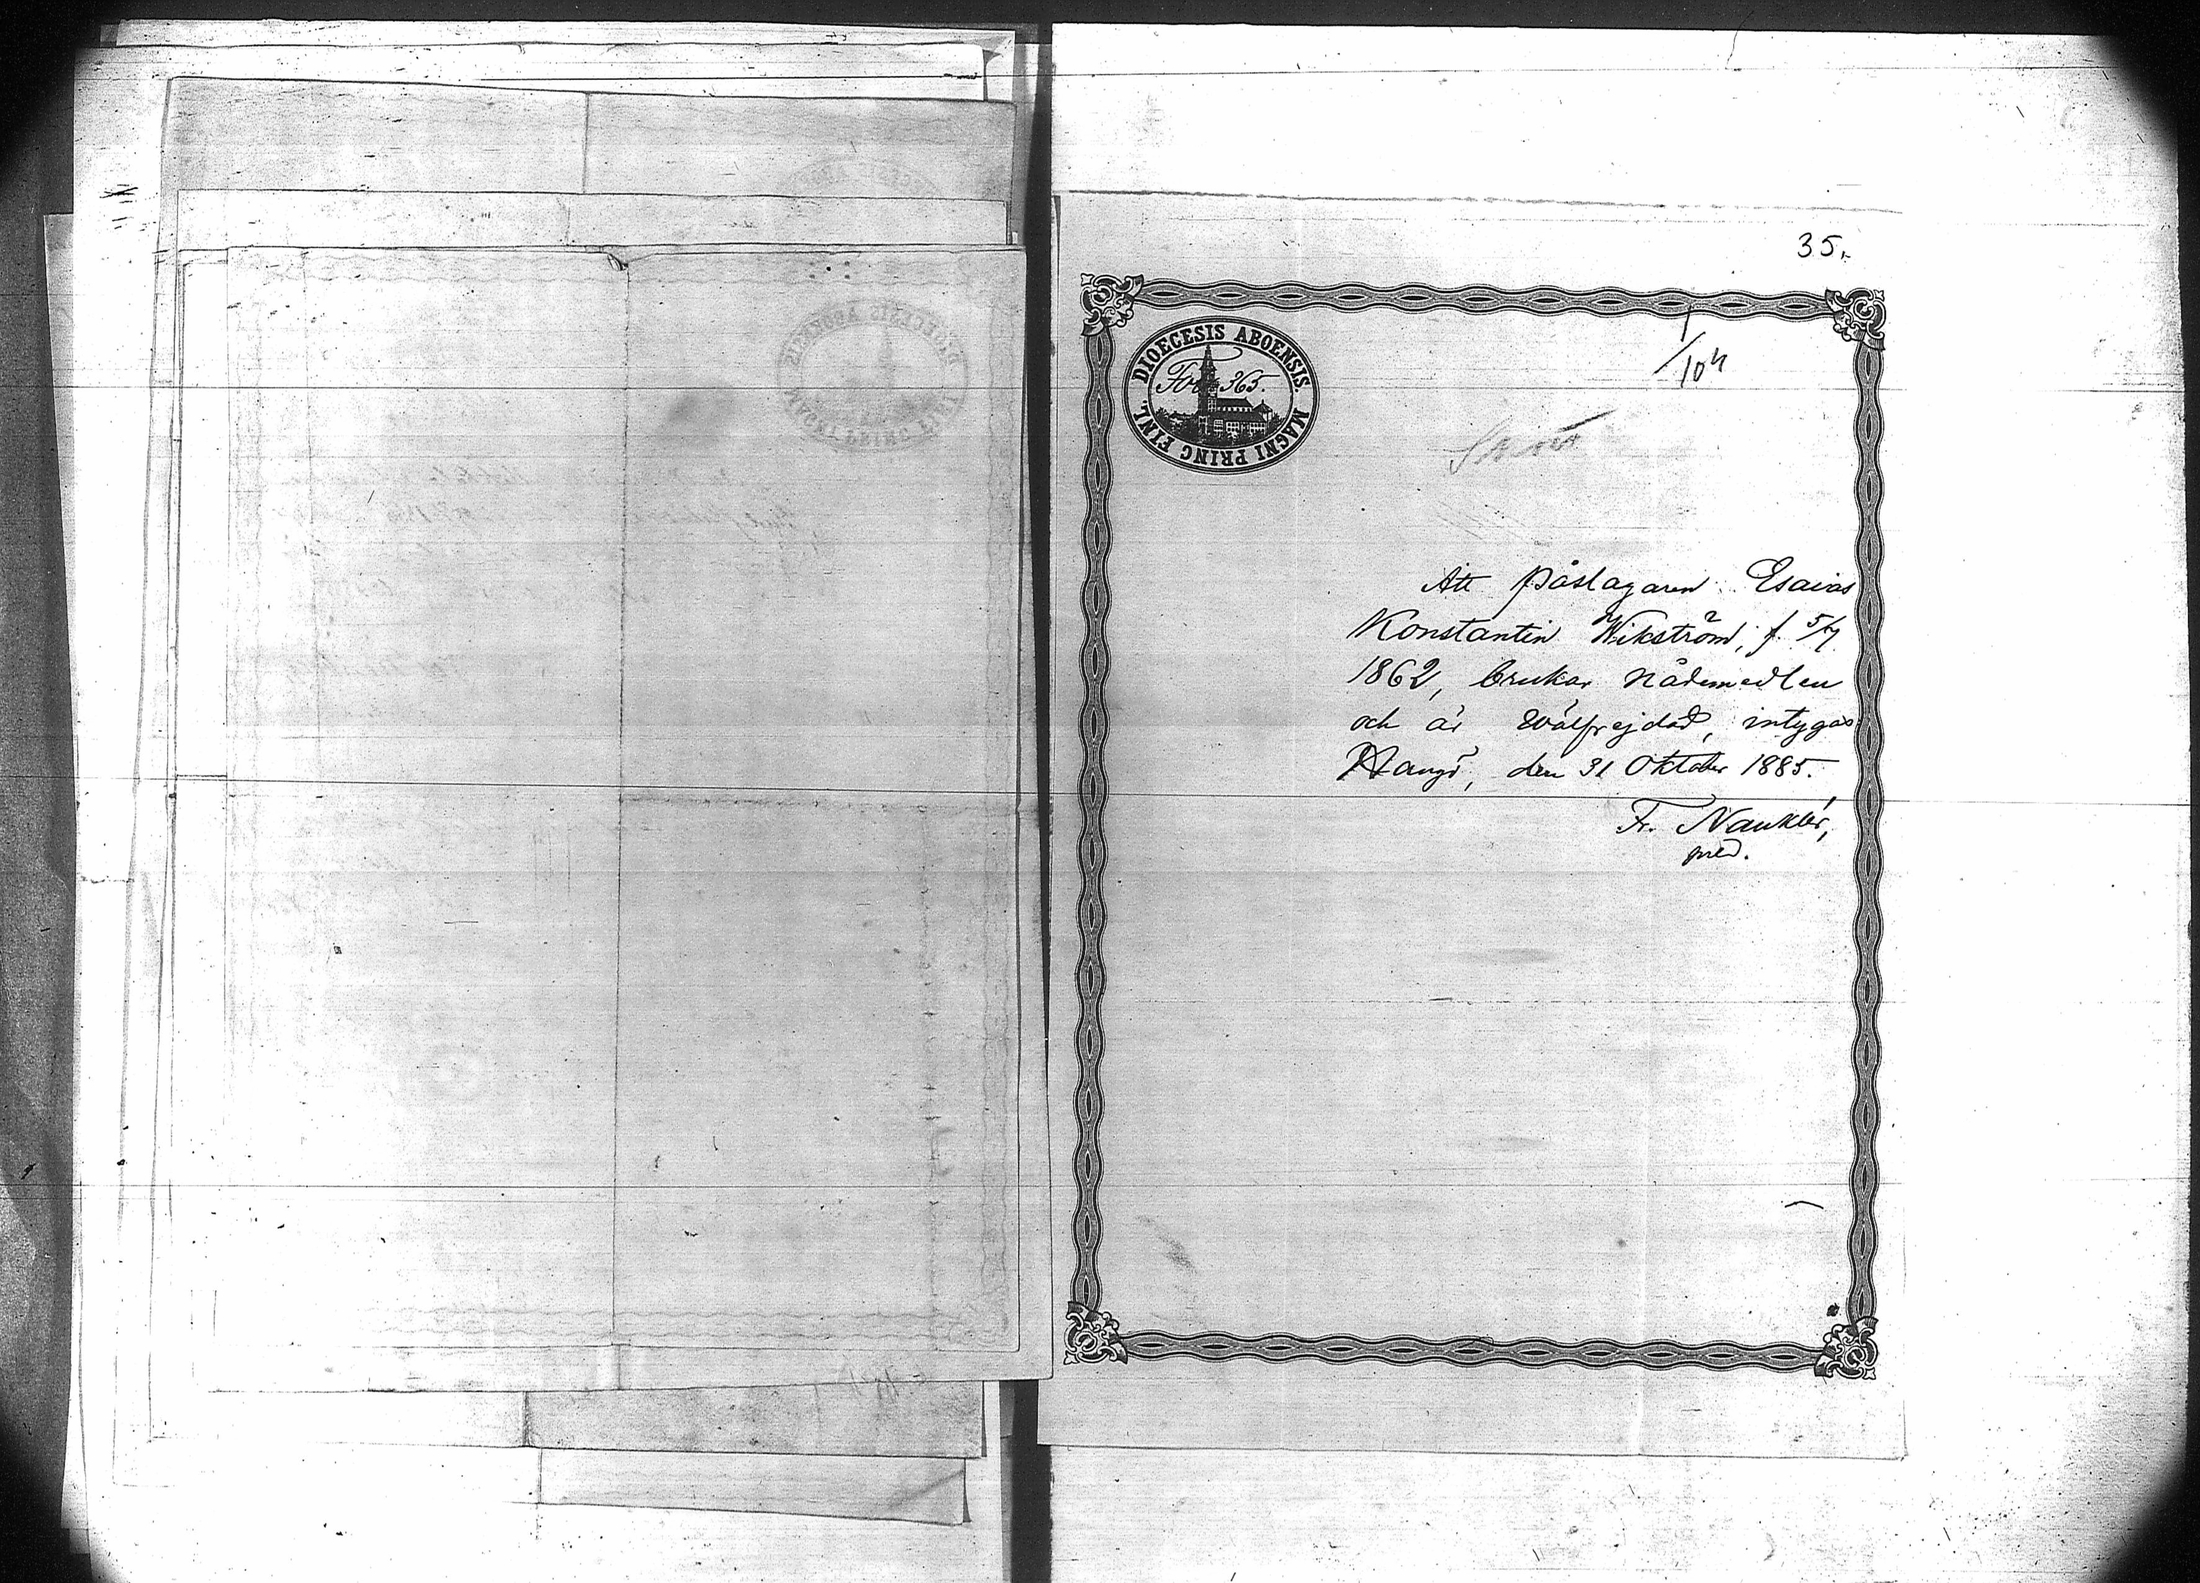 35.
1/104
DIOECESIS ABOENSIS. MAGNI PRINC FINL.
Fol. 365.
Att påslagaren Esaias
Konstantin Wikström, f. 5/7
1862, brukar nådemedlen
och är wälfrejdad, intygas
Hangö, den 31 Oktober 1885.
Fr. Nauklér,
pred.